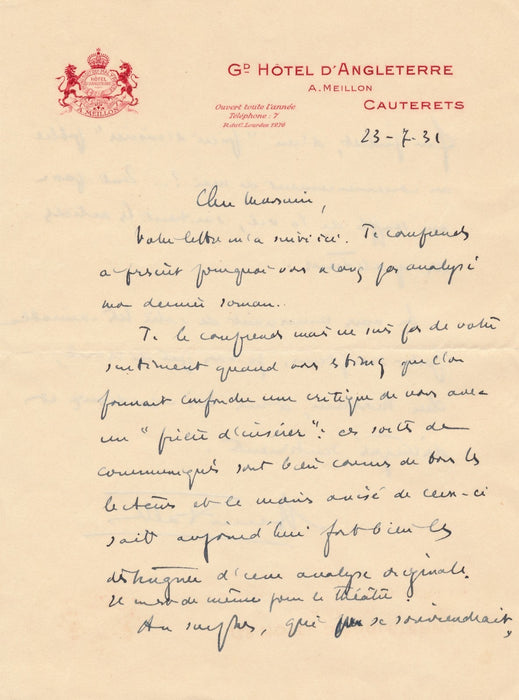 HÔTEL D'ANGLETERRE
A. MEILLON
GD HÔTEL D'ANGLETERRE
A. MEILLON
CAUTERETS
Ouvert toute l'année
Téléphone : 7
R. du C. Lourdes 1976
23-7-31
Cher Monsieur,
Votre lettre m'a suivi ici. Je comprends
à présent pourquoi vous n'avez pas analysé
mon dernier roman.
Je le comprends mais ne suis pas de votre
sentiment quand vous estimez que l'on
pourrait confondre une critique de vous avec
un "prière d'insérer": ces sortes de
communiqués sont bien connus de tous les
lecteurs et le moins avisé de ceux-ci
sait aujourd'hui fort bien les
distinguer d'une analyse originale.
Il en est de même pour le théâtre.
Au surplus, qui se souviendrait,